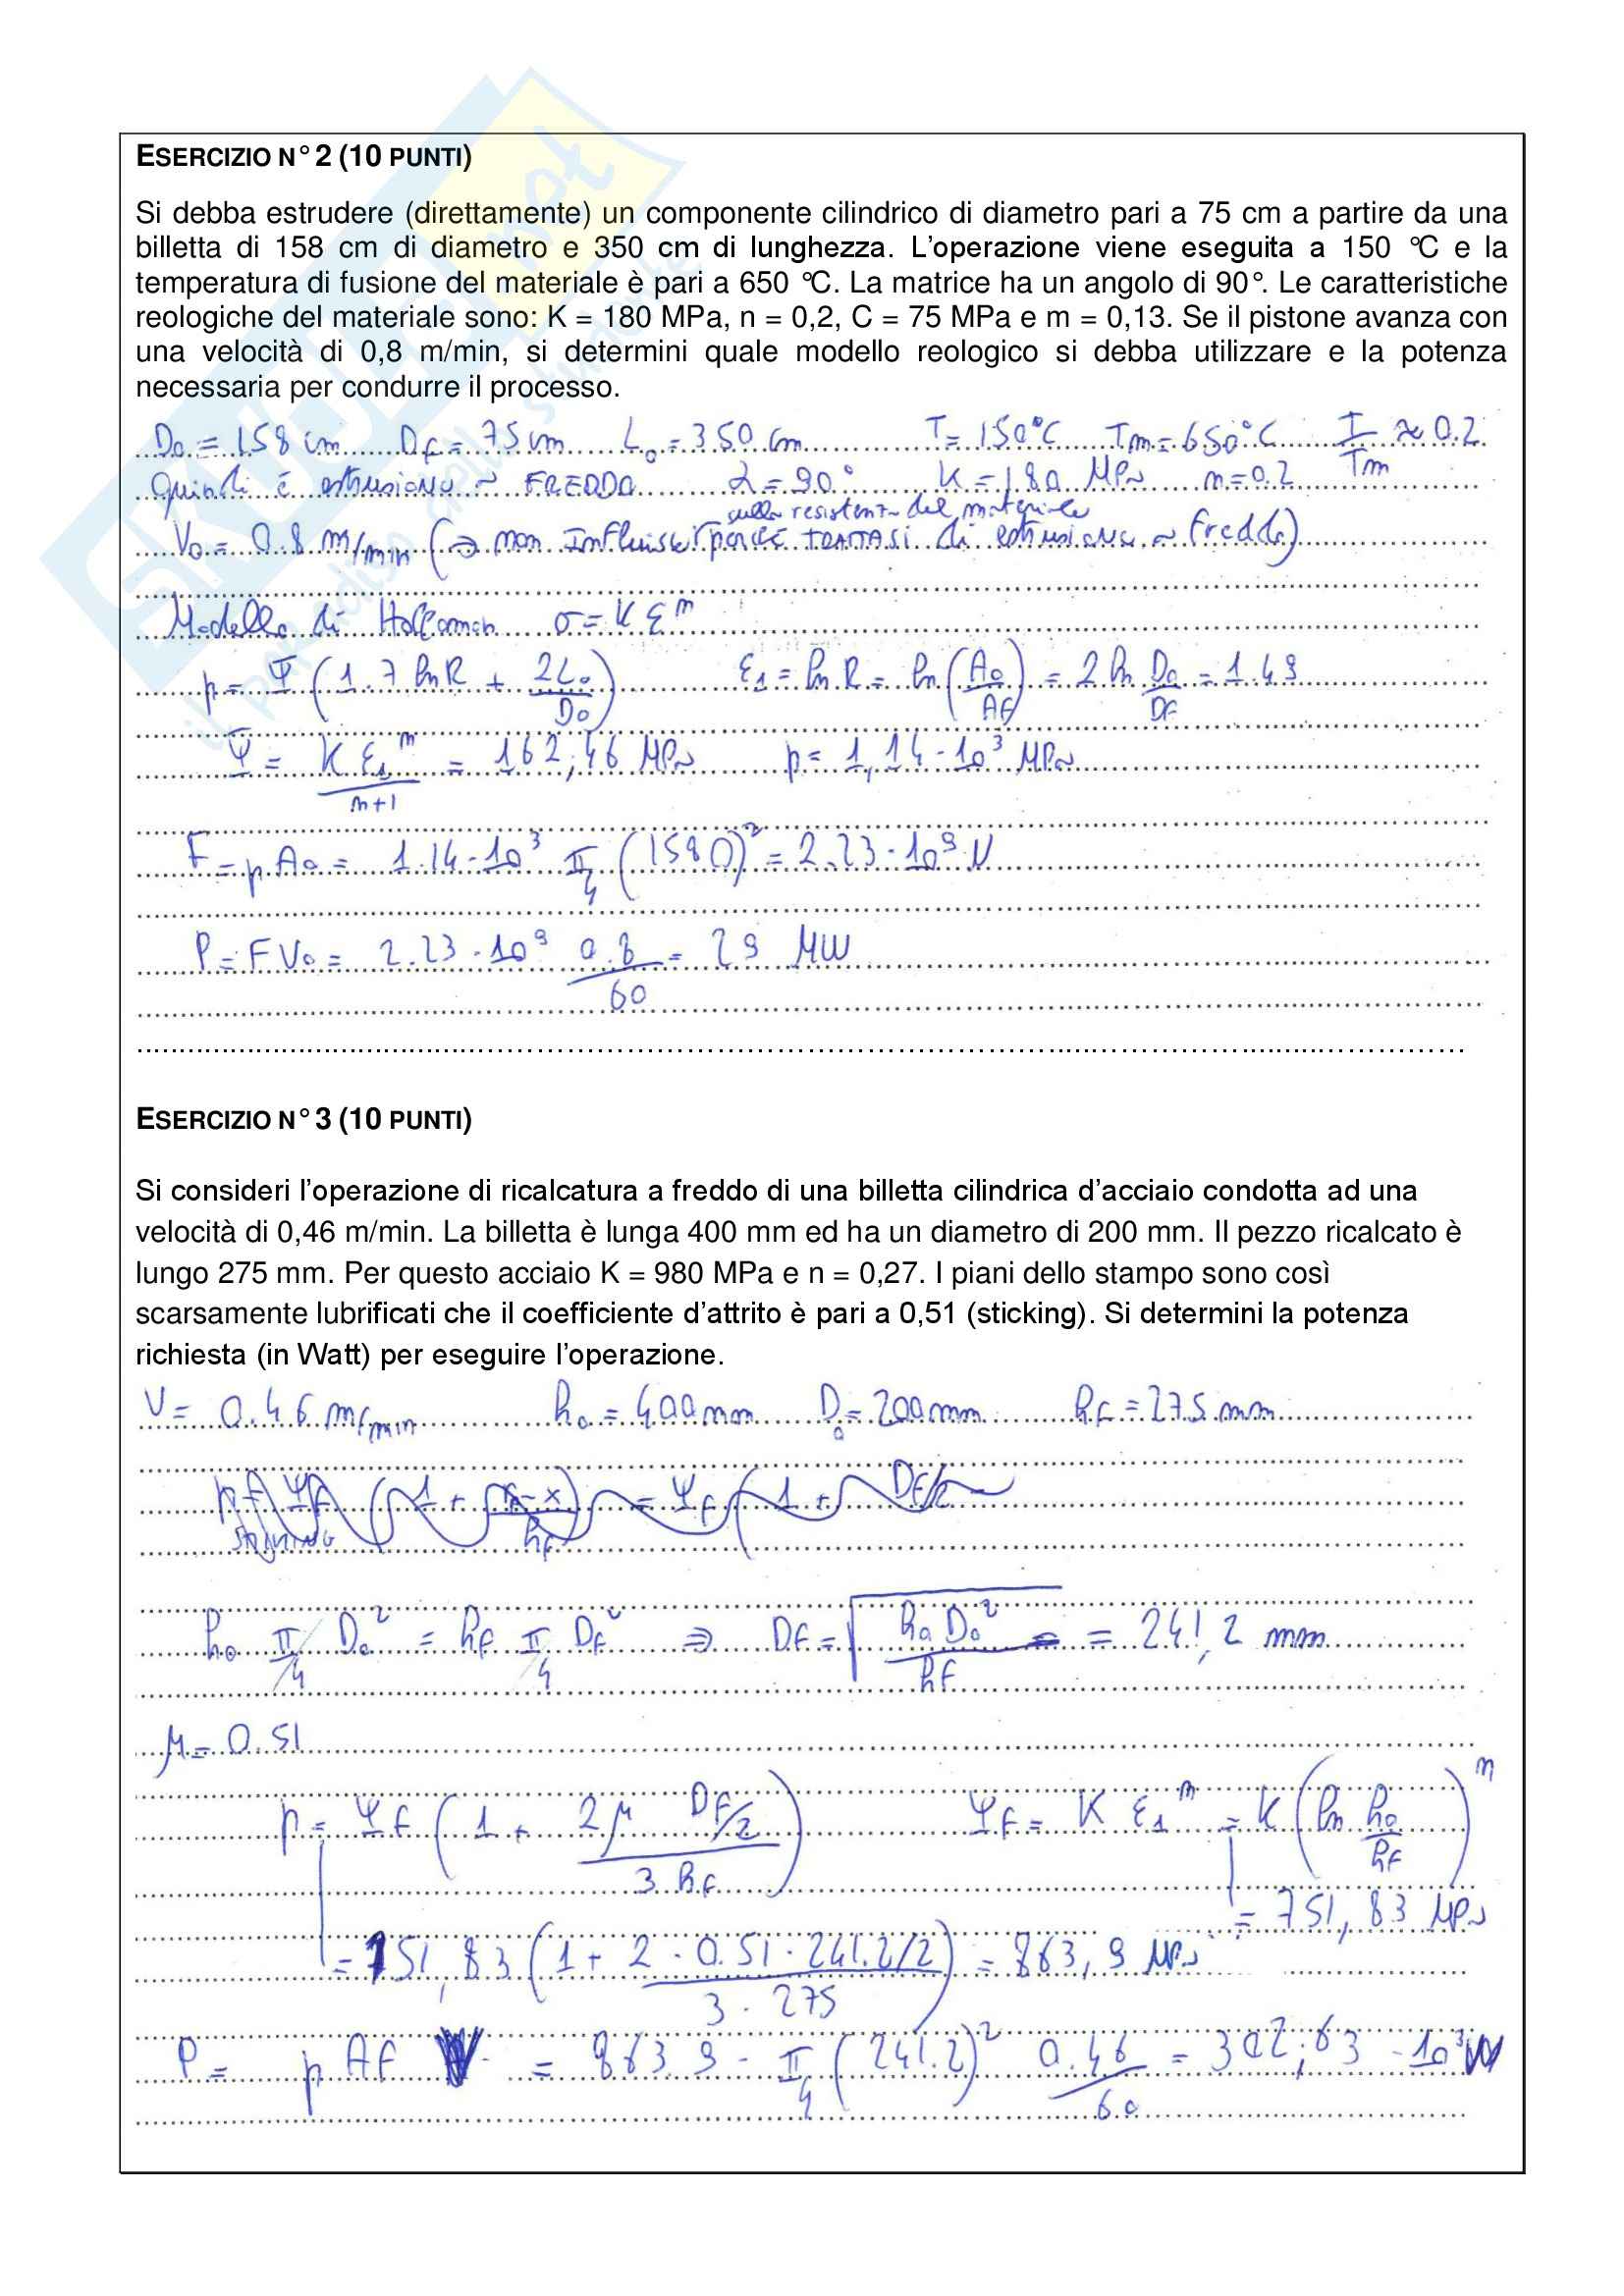 ESERCIZIO N° 2 (10 PUNTI)
Si debba estrudere (direttamente) un componente cilindrico di diametro pari a 75 cm a partire da una
billetta di 158 cm di diametro e 350 cm di lunghezza. L'operazione viene eseguita a 150 °C e la
temperatura di fusione del materiale è pari a 650 °C. La matrice ha un angolo di 90°. Le caratteristiche
reologiche del materiale sono: K = 180 MPa, n = 0,2, C = 75 MPa e m = 0,13. Se il pistone avanza con
una velocità di 0,8 m/min, si determini quale modello reologico si debba utilizzare e la potenza
necessaria per condurre il processo.
D₀ = 158 cm DF = 75 cm L₀ = 350 cm T = 150°C Tm = 650°C T/Tm ≈ 0.2
Quindi è estrusione a FREDDO α = 90° K = 180 MPa n = 0.2
sulla resistenza del materiale
V₀ = 0.8 m/min (⇒ non Influisce perché TRATTASI di estrusione a freddo)
Modello di Hollomon σ = K ε^n
p = Ψ (1.7 ln R + 2L₀/D₀) ε₁ = ln R = ln (A₀/AF) = 2 ln D₀/DF = 1.49
Ψ = K ε₁^n/(n+1) = 162,46 MPa p = 1,14 · 10³ MPa
F = p A₀ = 1.14 · 10³ π/4 (1580)² = 2.23 · 10⁹ N
P = F V₀ = 2.23 · 10⁹ 0.8/60 = 29 MW
ESERCIZIO N° 3 (10 PUNTI)
Si consideri l'operazione di ricalcatura a freddo di una billetta cilindrica d'acciaio condotta ad una
velocità di 0,46 m/min. La billetta è lunga 400 mm ed ha un diametro di 200 mm. Il pezzo ricalcato è
lungo 275 mm. Per questo acciaio K = 980 MPa e n = 0,27. I piani dello stampo sono così
scarsamente lubrificati che il coefficiente d'attrito è pari a 0,51 (sticking). Si determini la potenza
richiesta (in Watt) per eseguire l'operazione.
V = 0.46 m/min h₀ = 400 mm D₀ = 200 mm hF = 275 mm
h₀ π/4 D₀² = hF π/4 DF² ⇒ DF = √(h₀ D₀²/hF) = 241,2 mm
μ = 0.51
p = ΨF (1 + 2μ DF/2 / 3 hF) ΨF = K ε₁^n = K (ln h₀/hF)^n
= 751,83 MPa
= 751,83 (1 + 2 · 0.51 · 241.2/2 / 3 · 275) = 863,9 MPa
P = p AF V = 863.9 · π/4 (241.2)² 0.46/60 = 302,63 · 10³ W